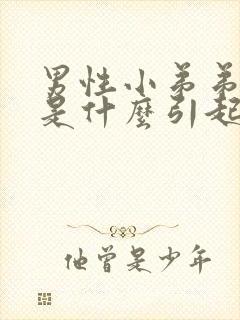 男性小弟弟
是什麼引起
他曾是少年